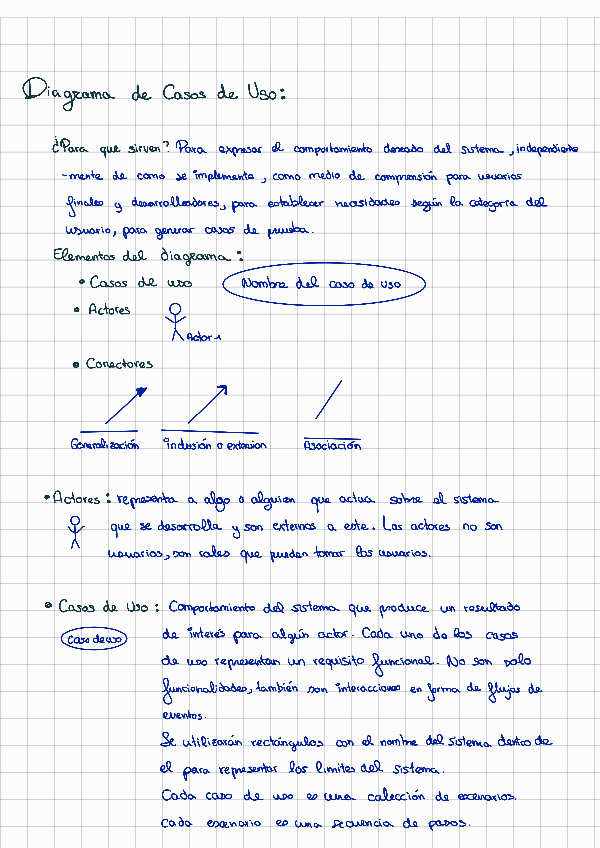 Diagrama de Casos de Uso:
¿Para que sirven? Para expresar el comportamiento deseado del sistema, independiente
-mente de como se implementa, como medio de comprensión para usuarios
finales y desarrolladores, para establecer necesidades según la categoria del
usuario, para generar casos de prueba.
Elementos del diagrama:
• Casos de uso Nombre del caso de uso
• Actores
Actor 1
• Conectores
Generalización Inclusión o extension Asociación
• Actores: representa a algo o alguien que actua sobre el sistema
que se desarrolla y son externos a este. Los actores no son
usuarios, son roles que pueden tomar los usuarios.
• Casos de Uso: Comportamiento del sistema que produce un resultado
Caso de uso de interés para algún actor. Cada uno de los casos
de uso representan un requisito funcional. No son solo
funcionalidades, también son interacciones en forma de flujos de
eventos.
Se utilizarán rectángulos con el nombre del sistema dentro de
el para representar los limites del sistema.
Cada caso de uso es una colección de escenarios.
Cada escenario es una secuencia de pasos.